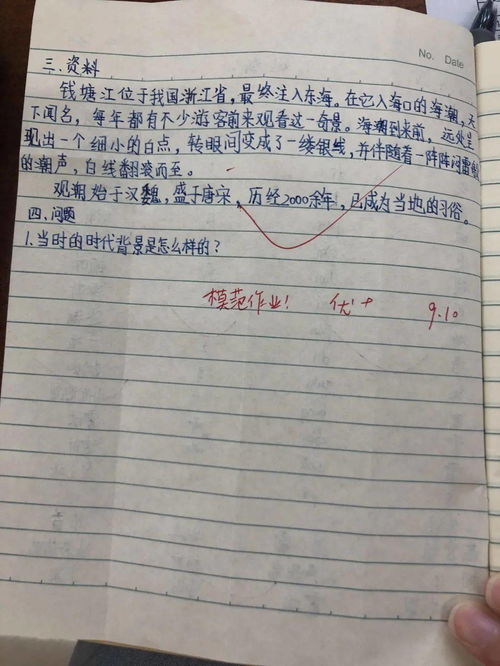 No. Date
三、资料
钱塘江位于我国浙江省，最终注入东海。在它入海口的海潮，天
下闻名，每年都有不少游客前来观看这一奇景。海潮到来前，远处呈
现出一个细小的白点，转眼间变成了一缕银线，并伴随着一阵阵闷雷般
的潮声，白线翻滚而至。
观潮始于汉魏，盛于唐宋，历经2000余年，已成为当地的习俗。
四、问题
1.当时的时代背景是怎么样的？
模范作业！ 优+ 9.10